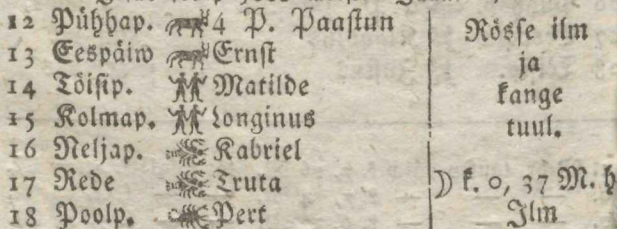 12 Pühhap. 4 P. Paastun
13 Eespäiw Ernst
14 Töisip. Matilde
15 Kolmap. Longinus
16 Neljap. Kabriel
17 Rede Truta
18 Poolp. Pert
Rösse ilm
ja
kange
tuul.
☽ k. 0, 37 M. h
Ilm